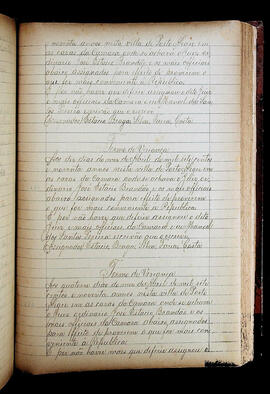 e noventa annos nesta villa de Porto Alegre em
as casas da Camara onde se achava o Juiz or-
dinario José Estacio Brandão e os mais officiaes
abaixo assignados para effeito de proverem o
que for mais conveniente a Republica.
E por não haver que deferir assignou o dito Juiz
e mais officiaes da Camara e eu Manoel dos San-
tos escrivão que o escrevi.
Assignados Estacio Braga, Silva, Costa
Termo de Vereança
Aos dez dias do mez de Abril de mil setecentos
e noventa annos nesta villa de Porto Alegre em
as casas da Camara onde se achava o Juiz or-
dinario José Estacio Brandão e os mais officiaes
abaixo assignados para effeito de proverem
o que for mais conveniente a Republica.
E por não haver que deferir assignou o dito
Juiz e mais officiaes da Camara e eu Manoel
dos Santos escrivão que escrevi.
Assignados Estacio, Braga, Silva, Costa
Termo de Vereança
Aos quatorze dias do mez de Abril de mil sete
centos e noventa annos nesta villa de Porto
Alegre em as casas da Camara onde se achava
o Juiz ordinario José Estacio Brandão e os
mais officiaes da Camara abaixo assignados
para effeito de proverem o que for mais con-
veniente á Republica.
E por não haver mais que deferir assignou o